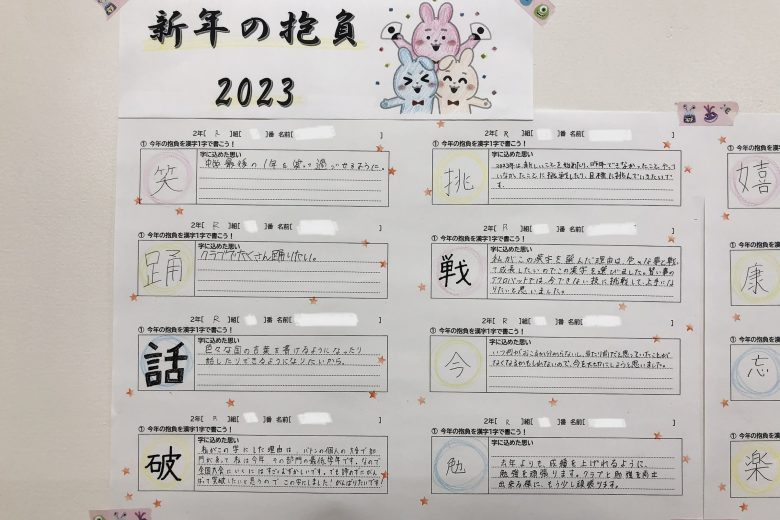 新年の抱負
2023
2年[ R ]組[ ]番 名前[ ]
① 今年の抱負を漢字1字で書こう！
笑
字に込めた思い
中学最後の1年を笑って過ごせるように。
2年[ R ]組[ ]番 名前[ ]
① 今年の抱負を漢字1字で書こう！
踊
字に込めた思い
クラブでたくさん踊りたい。
2年[ R ]組[ ]番 名前[ ]
① 今年の抱負を漢字1字で書こう！
話
字に込めた思い
色々な国の言葉を書けるようになったり
話したりできるようになりたいから。
2年[ R ]組[ ]番 名前[ ]
① 今年の抱負を漢字1字で書こう！
破
字に込めた思い
私がこの字にした理由は、バトンの個人の大会で部
門があって私は今年、その部門の最低学年です。なので
全国大会にいくにはすごくむずかしいです。でも諦めずにがん
ばって突破したいと思うのでこの字にしました！がんばりたいです！
2年[ R ]組[ ]番 名前[ ]
① 今年の抱負を漢字1字で書こう！
挑
字に込めた思い
2023年は新しいことを始めたり、昨年できなかったこと、やって
いなかったことに挑戦したり、目標に挑んでいきたいで
す。
2年[ R ]組[ ]番 名前[ ]
① 今年の抱負を漢字1字で書こう！
戦
字に込めた思い
私がこの漢字を選んだ理由は、色々な事と戦っ
て成長したいのでこの漢字を選びました。習い事の
アクロバットでは、今できない技に挑戦して、上手にな
りたいと思いました。
2年[ R ]組[ ]番 名前[ ]
① 今年の抱負を漢字1字で書こう！
今
字に込めた思い
いつ何がおこるか分からないし、当たり前だと思っていたことが
なくなるかもしれないので、今を大切にしようと思いました。
2年[ R ]組[ ]番 名前[ ]
① 今年の抱負を漢字1字で書こう！
勉
字に込めた思い
去年よりも、成績を上げれるように、
勉強を頑張ります。クラブと勉強を両立
出来る様に、もう少し頑張ります。
① 今年の
嬉
① 今年の
康
① 今年の
忘
① 今年の
楽